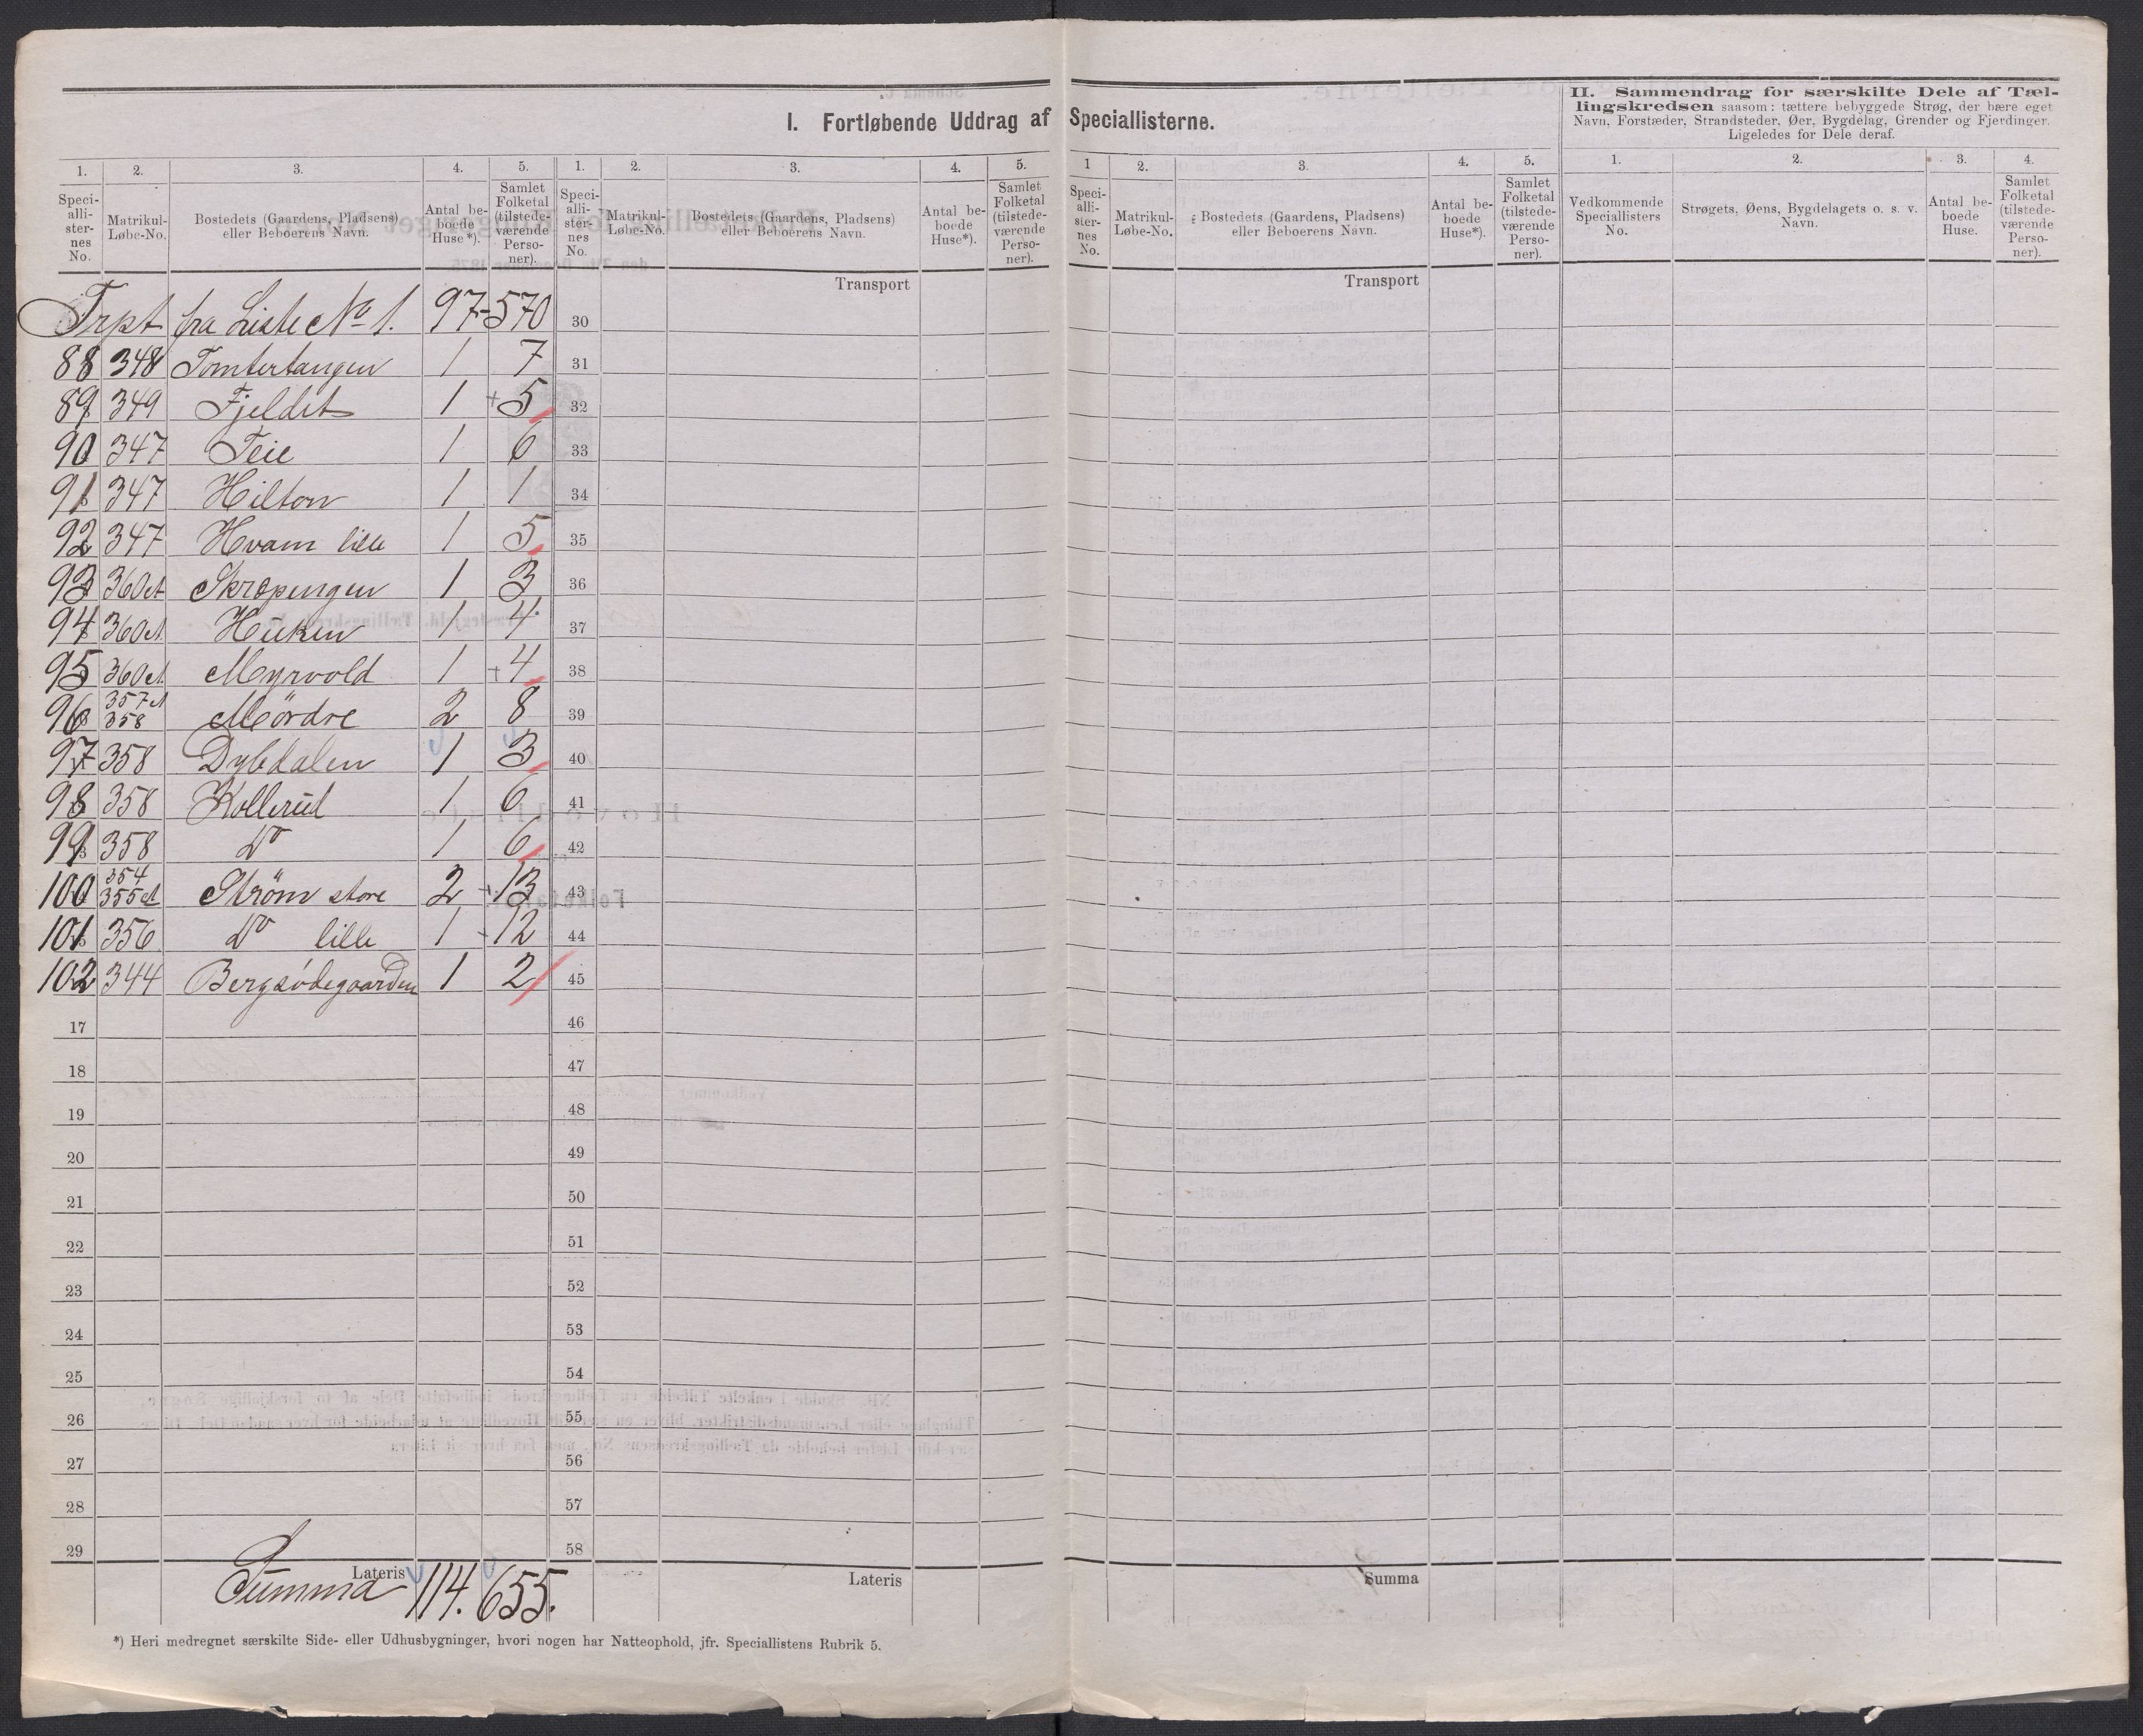 I. Fortløbende Uddrag af Speciallisterne.
II. Sammendrag for særskilte Dele af Tæl-
lingskredsen saasom: tættere bebyggede Strøg, der bære eget
Navn, Forstæder, Strandsteder, Øer, Bygdelag, Grender og Fjerdinger.
Ligeledes for Dele deraf.
1. 2. 3. 4. 5. 1. 2. 3. 4. 5. 1 2. 3. 4. 5. 1. 2. 3. 4.
Speci-
alli-
ster-
nes
No.
Matrikul-
Løbe-No.
Bostedets (Gaardens, Pladsens)
eller Beboerens Navn.
Antal be-
boede
Huse*).
Samlet
Folketal
(tilstede-
værende
Perso-
ner).
Speci-
alli-
ster-
nes
No.
Matrikul-
Løbe-No.
Bostedets (Gaardens, Pladsens)
eller Beboerens Navn.
Antal be-
boede
Huse*).
Samlet
Folketal
(tilstede-
værende
Perso-
ner).
Speci-
alli-
ster-
nes
No.
Matrikul-
Løbe-No.
Bostedets (Gaardens, Pladsens)
eller Beboerens Navn.
Antal be-
boede
Huse*).
Samlet
Folketal
(tilstede-
værende
Perso-
ner).
Vedkommende
Speciallisters
No.
Strøgets, Øens, Bygdelagets o. s. v.
Navn.
Antal be-
boede
Huse.
Samlet
Folketal
(tilstede-
værende
Perso-
ner).
Transport Transport
Trpt fra Liste No 1. 97 570 30
88 348 Tomtertangen 1 7 31
89 349 Fjeldet 1 + 5 32
90 347 Teie 1 6 33
91 347 Hilton 1 1 34
92 347 Hvam lille 1 5 35
93 360A Skrapengen 1 3 36
94 360A Huken 1 4 37
95 360A Myrvold 1 + 4 38
96 357A
358 Mördre 2 8 39
97 358 Dybdalen 1 3 40
98 358 Kollerud 1 6 41
99 358 Do 1 6 42
100 354
355A Strøm store 2 + 13 43
101 356 Do lille 1 12 44
102 344 Bergsødegaarden 1 2 45
17 46
18 47
19 48
20 49
21 50
22 51
23 52
24 53
25 54
26 55
27 56
28 57
29 58
Lateris Lateris Summa
Summa 114. 655.
*) Heri medregnet særskilte Side- eller Udhusbygninger, hvori nogen har Natteophold, jfr. Speciallistens Rubrik 5.